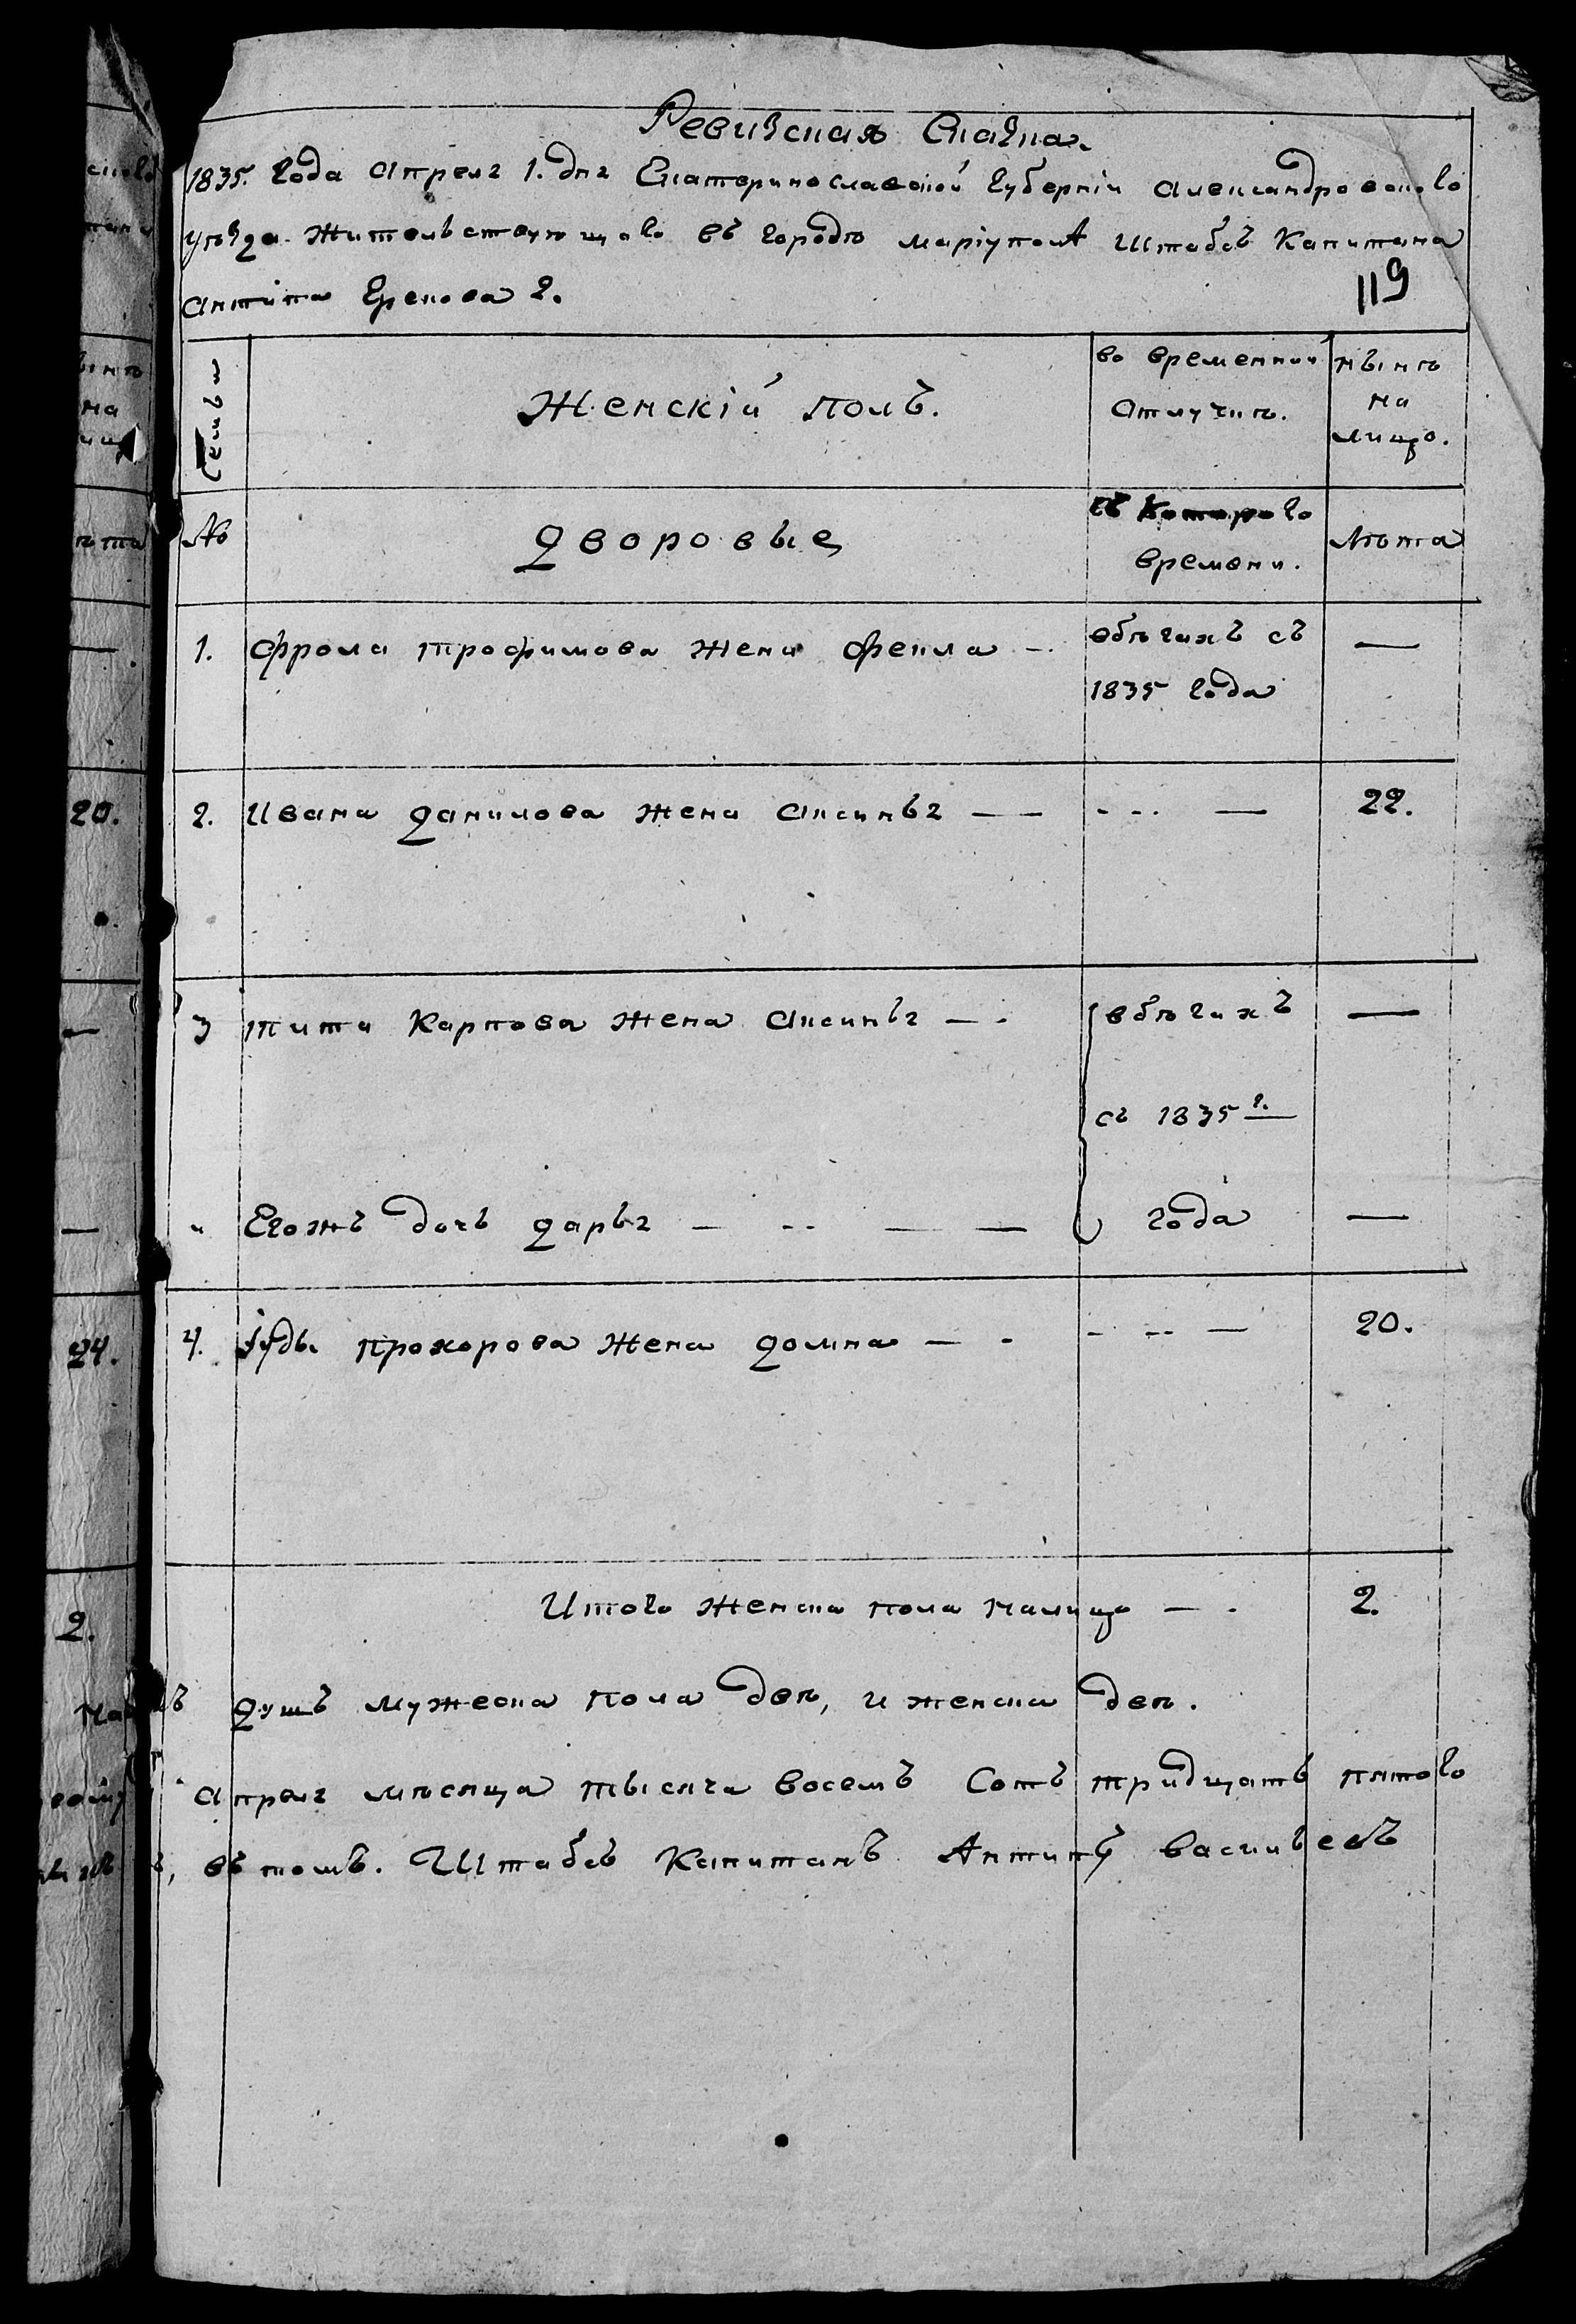 Ревизская Сказка.
1835. года апреля 1. дня Екатеринославской губернiи александровскаго
уѣзда жительствующаго въ городѣ марiуполѣ Штабсъ Капитана
антипа Грекова 2.
119
Семьи
Женскiй полъ.
во временной отлучкѣ.
нынѣ на лицо.
№
Дворовые
съ Котораго времени.
лѣта
1. фрола трофимова жена фекла — вбѣгахъ съ —
1835 года
2. Ивана Данилова жена аксинья — — - -- — 22.
3 тита Карпова жена аксинья — - вбѣгахъ —
съ 1835 г.
„ Егожъ дочь Дарья — -- — — года —
4. Iуды прохорова жена Домна — - - -- — 20.
Итого женска пола налицо — - 2.
Душъ мужеска пола двѣ, и женска двѣ.
апреля мѣсяца тысяча восемъ Сотъ тридцать пятого
въ томъ. Штабсъ Капитанъ Антипъ васильевъ
20.
24.
2.